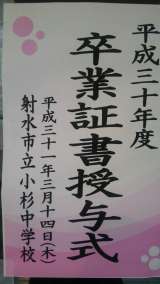 平成三十年度
卒業証書授与式
平成三十一年三月十四日(木)
射水市立小杉中学校